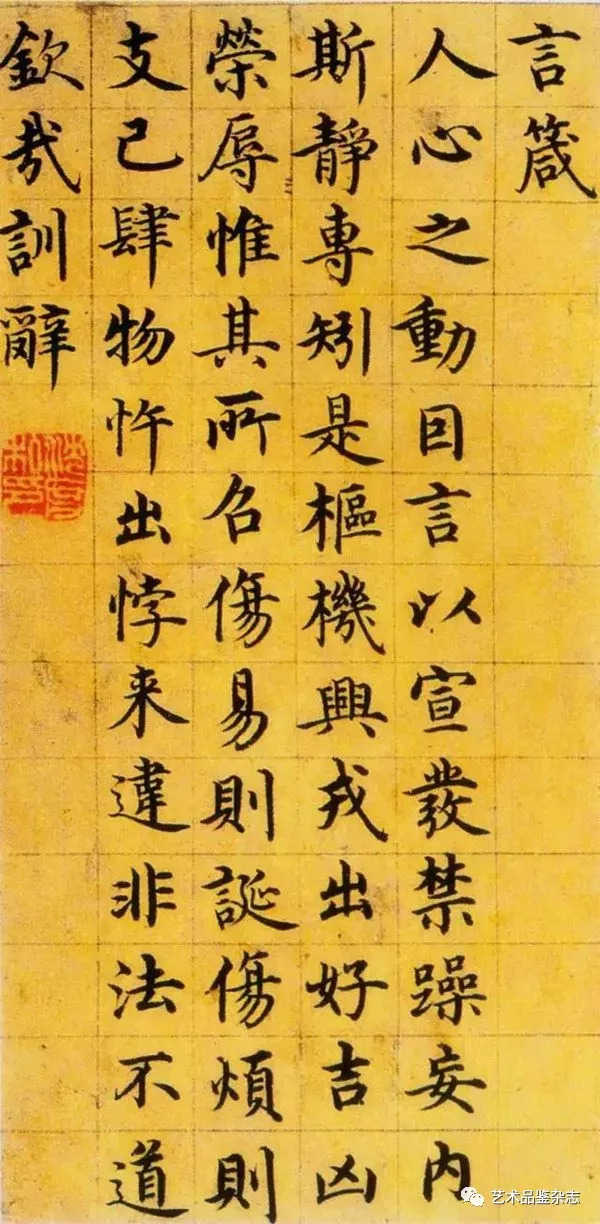 言箴
人心之動因言以宣發禁躁妄内
斯靜專矧是樞機興戎出好吉凶
榮辱惟其所召傷易則誕傷煩則
支己肆物忤出悖来違非法不道
欽哉訓辭
艺术品鉴杂志